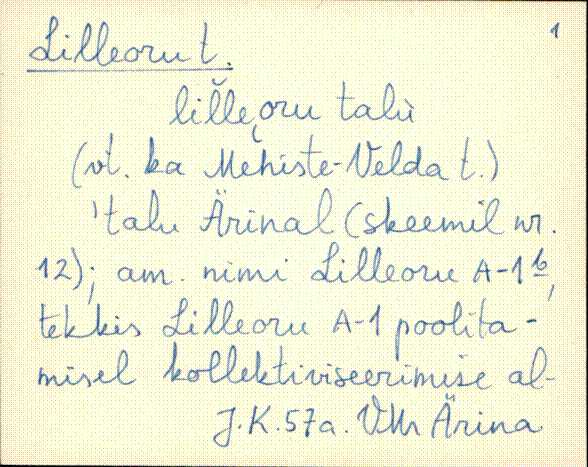 1
Lilleoru t.
lil̆le̬oru talù
(vt. ka Mehiste-Velda t.)
'talu Ärinal (skeemil nr.
12); am. nimi Lilleoru A-1b,
tekkis Lilleoru A-1 poolita-
misel kollektiviseerimise al-
J.K. 57a. VMr Ärina